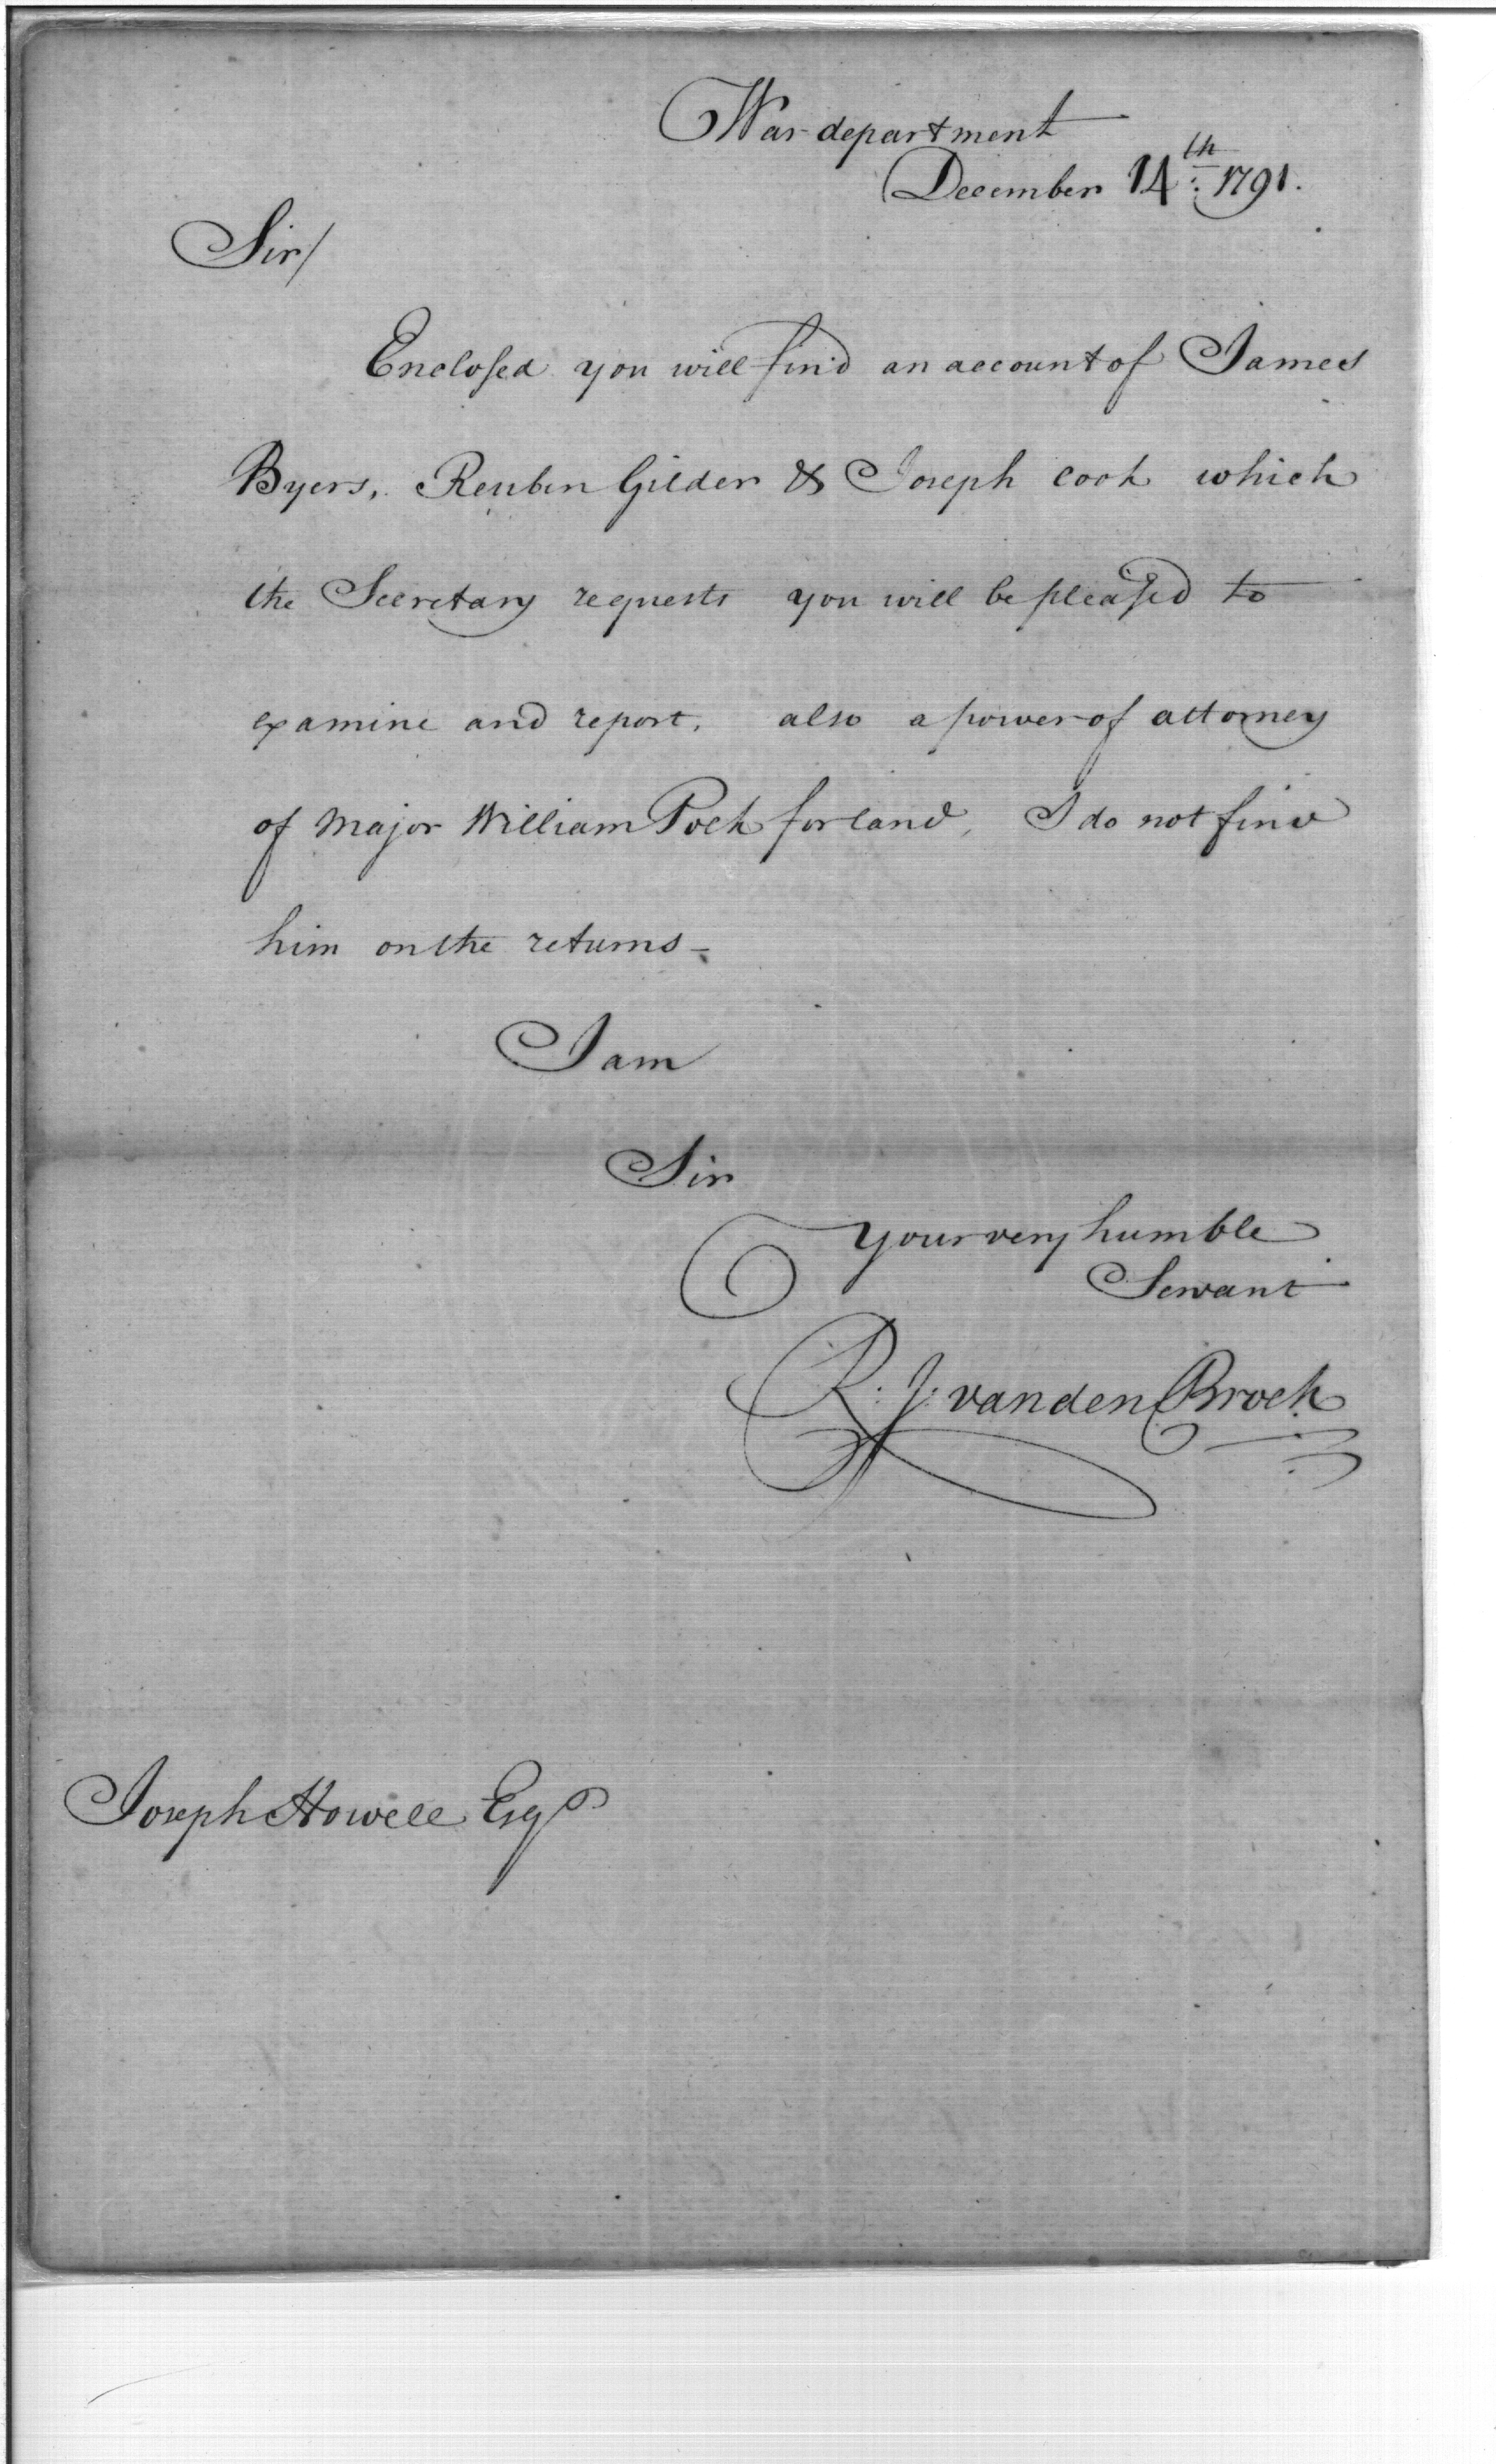 War department
December 14th: 1791.
Sir/
Enclosed you will find an account of James
Byers, Reuben Gilder & Joseph Cook which
the Secretary requests you will be pleased to
examine and report, also a power of attorney
of Major William Polk for land, I do not find
him on the returns -
I am
Sir
Your very humble
Servant
R: J: vanden Broek
Joseph Howell Esqr